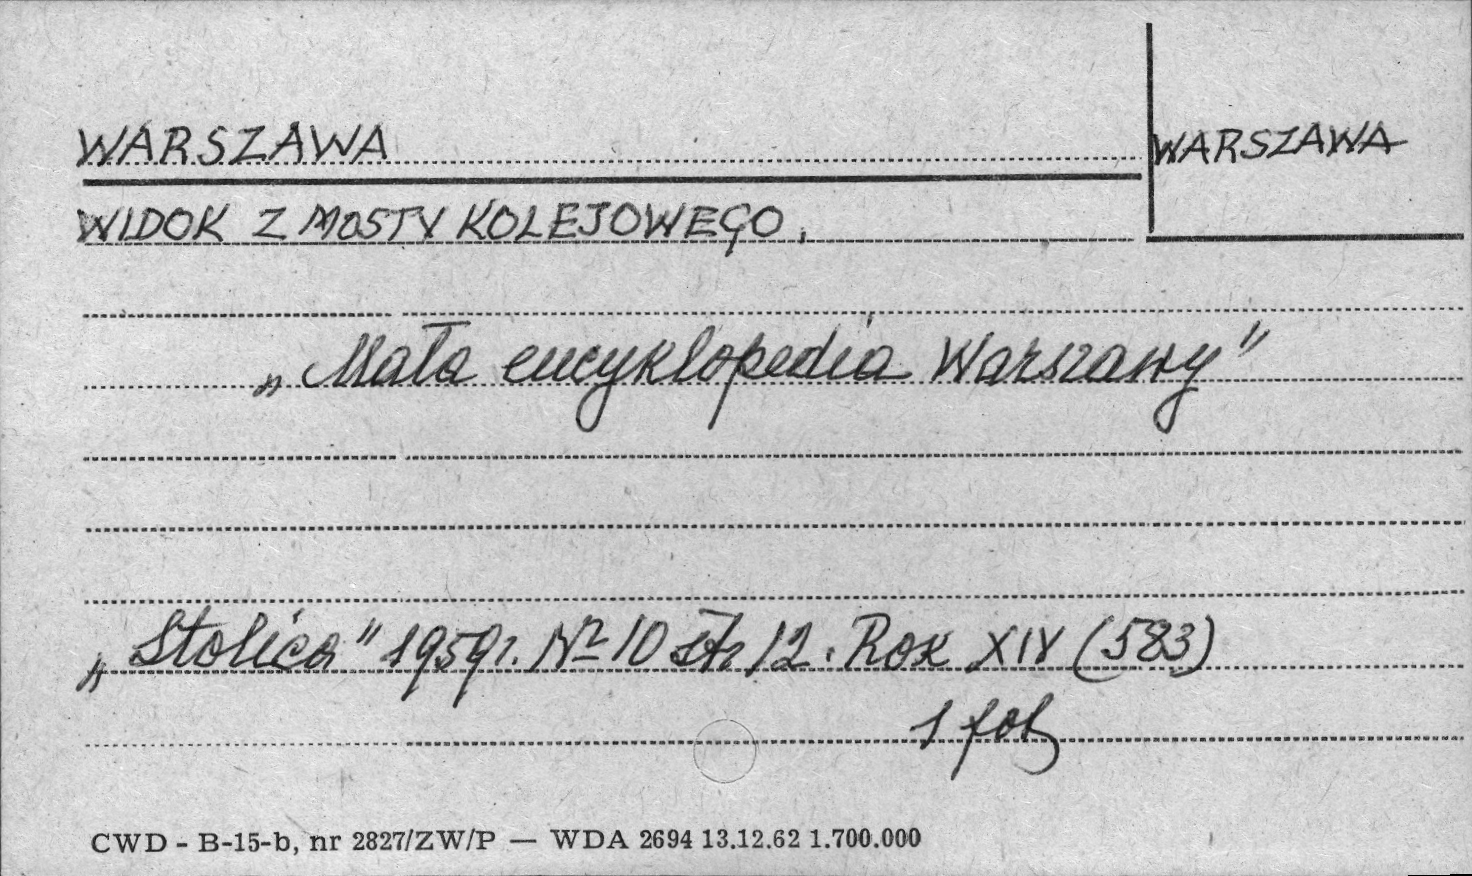 WARSZAWA
WARSZAWA
WIDOK Z MOSTU KOLEJOWEGO.
„Mała encyklopedia Warszawy"
„Stolica" 1959r. Nº 10 str 12. Rok XIV (583)
1 fot
CWD - B-15-b, nr 2827/ZW/P — WDA 2694 13.12.62 1.700.000